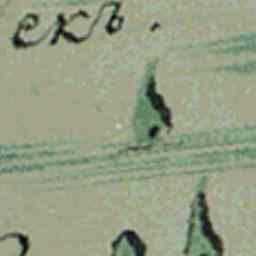 екъ.